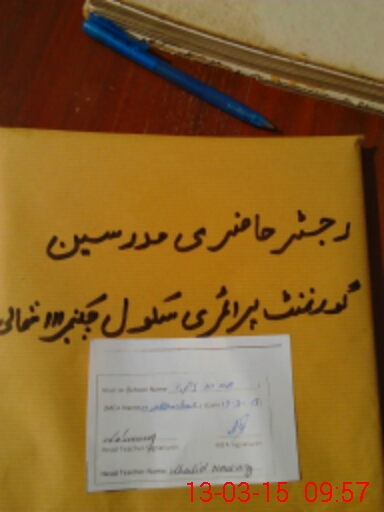 رجسٹر حاضری مدرسین
گورنمنٹ پرائمری سکول چک نمبر 111 شمالی
School Name
Head Teacher Signature
MEA Signature
Head Teacher Name: Khalid Nawaz
13-03-15 09:57